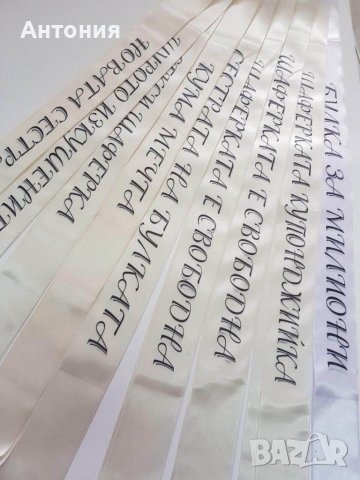 Антония
НОВАТА СЕСТР
ЩУРОТО ИЗКУШЕНИЕ
СЕКСИ ШАФЕРКА
КУМА МЕЧТА
СЕСТРАТА НА БУЛКАТА
ШАФЕРКАТА Е СВОБОДНА
ШАФЕРКАТА Е СВОБОДНА
ШАФЕРКАТА КУПОНДЖИЙКА
БУЛКА ЗА МИЛИОНИ
BAZAR